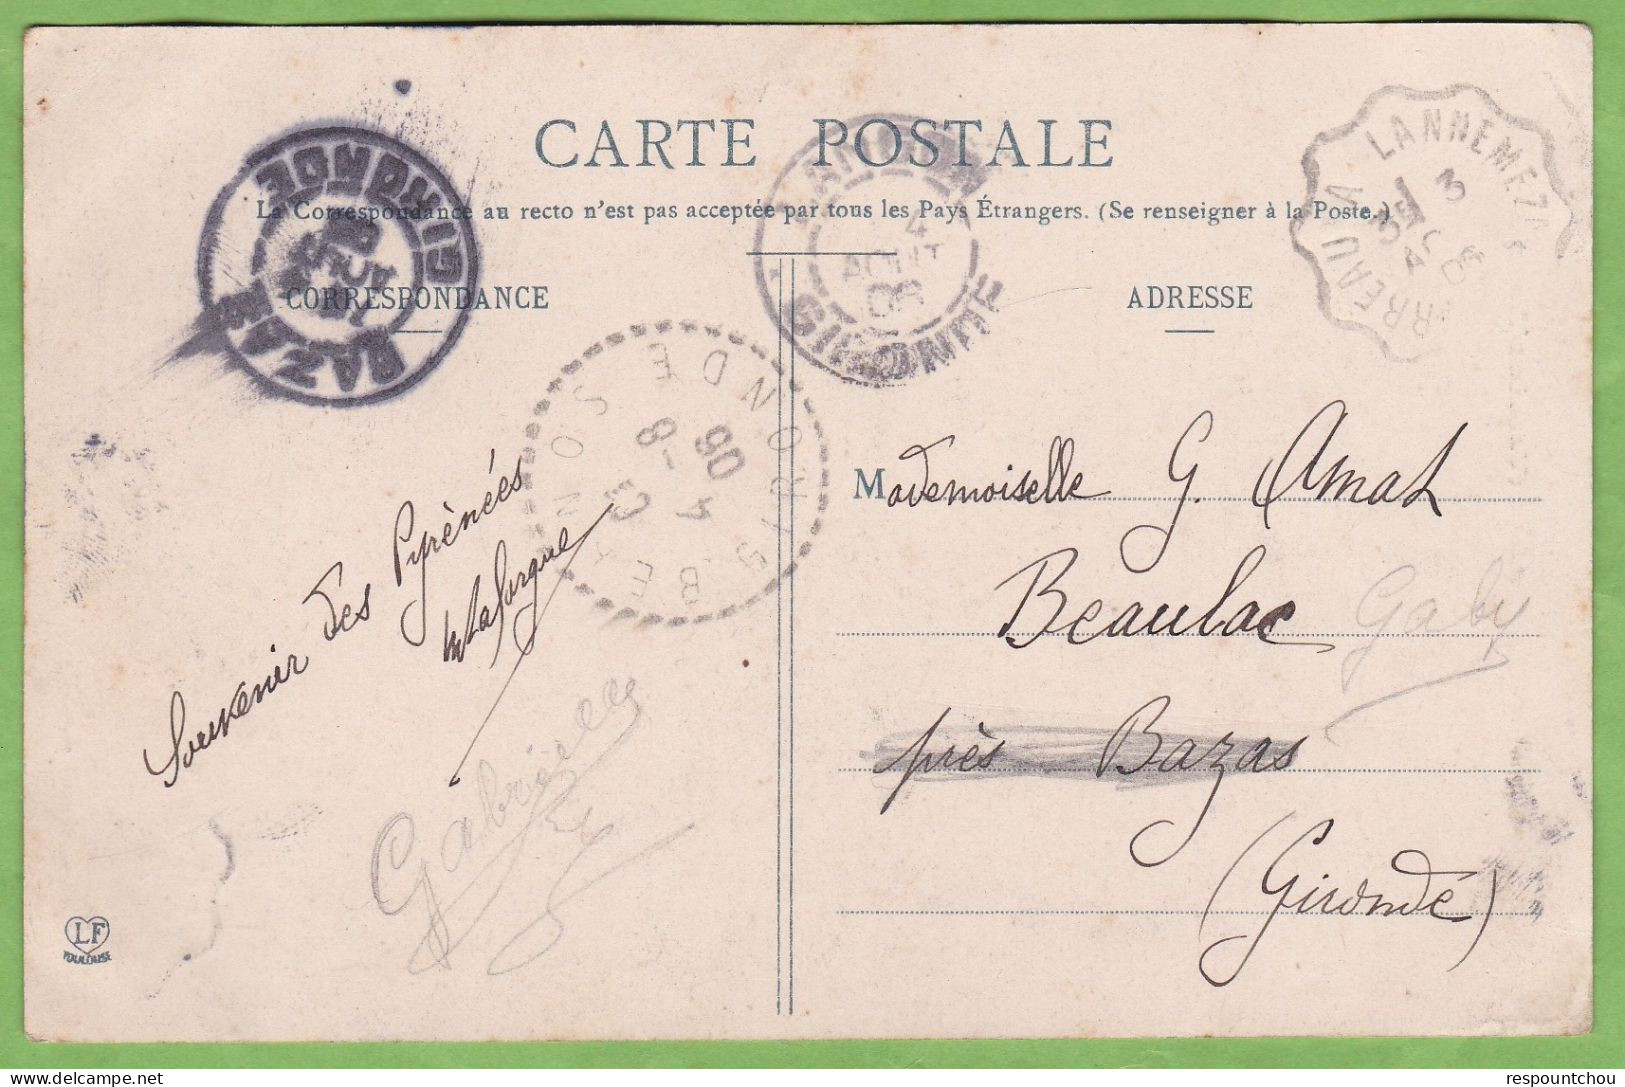 CARTE POSTALE
La Correspondance au recto n'est pas acceptée par tous les Pays Étrangers. (Se renseigner à la Poste.)
CORRESPONDANCE
ADRESSE
BAZAS
GIRONDE
4
AOUT
06
GIRONDE
ARREAU A LANNEMEZAN
3
AOUT
06
BERNOS GIRONDE
8
4
8
06
Souvenir des Pyrénées
MLaforgue
Gabrielle
Mademoiselle G. Amat
Beaulac
Gaby
près Bazas
(Gironde)
LF
TOULOUSE
respountchou
delcampe.net